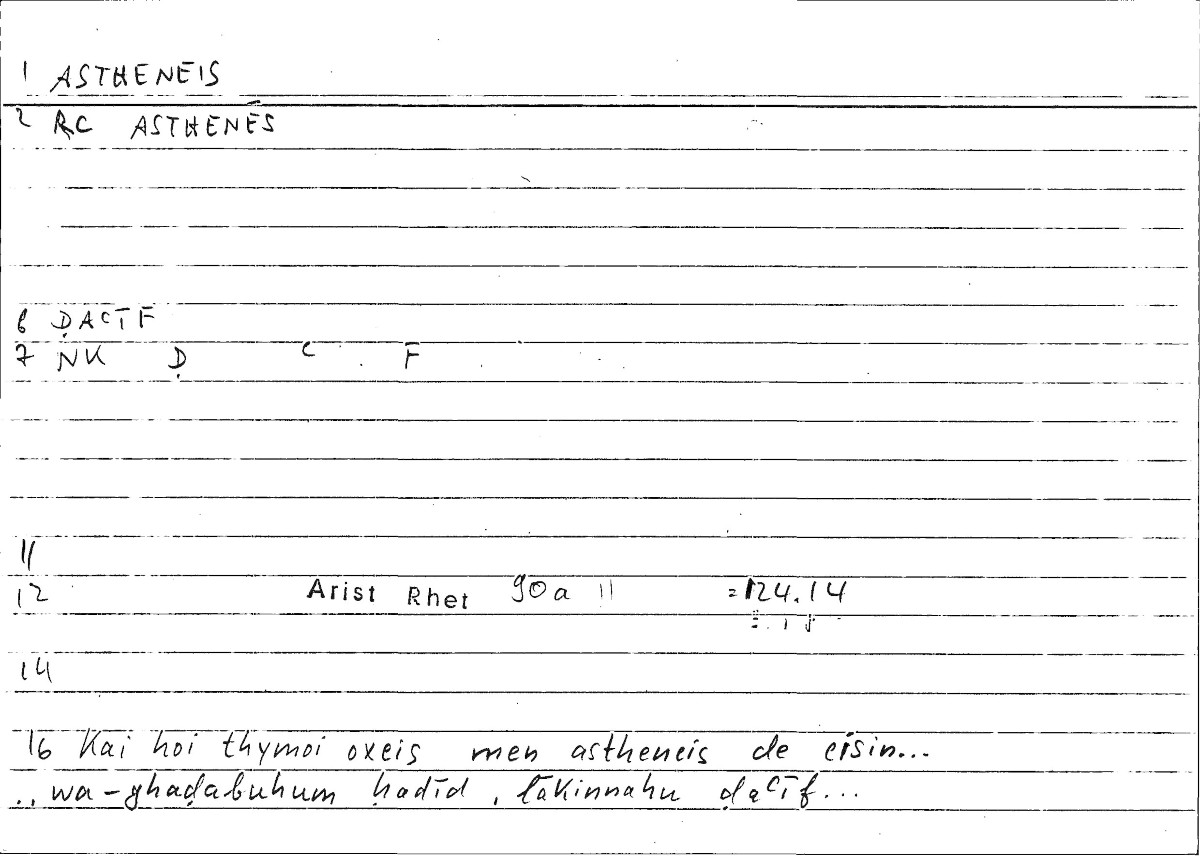 1 ASTHENEIS
2 RC ASTHENĒS
6 ḌAᶜĪF
7 NK Ḍ ᶜ F
11
12 Arist Rhet 90a 11 =124.14
14
16 Kai hoi thymoi oxeis men astheneis de eisin...
.. wa-ghaḍabuhum ḥadīd, lākinnahu ḍaᶜīf...